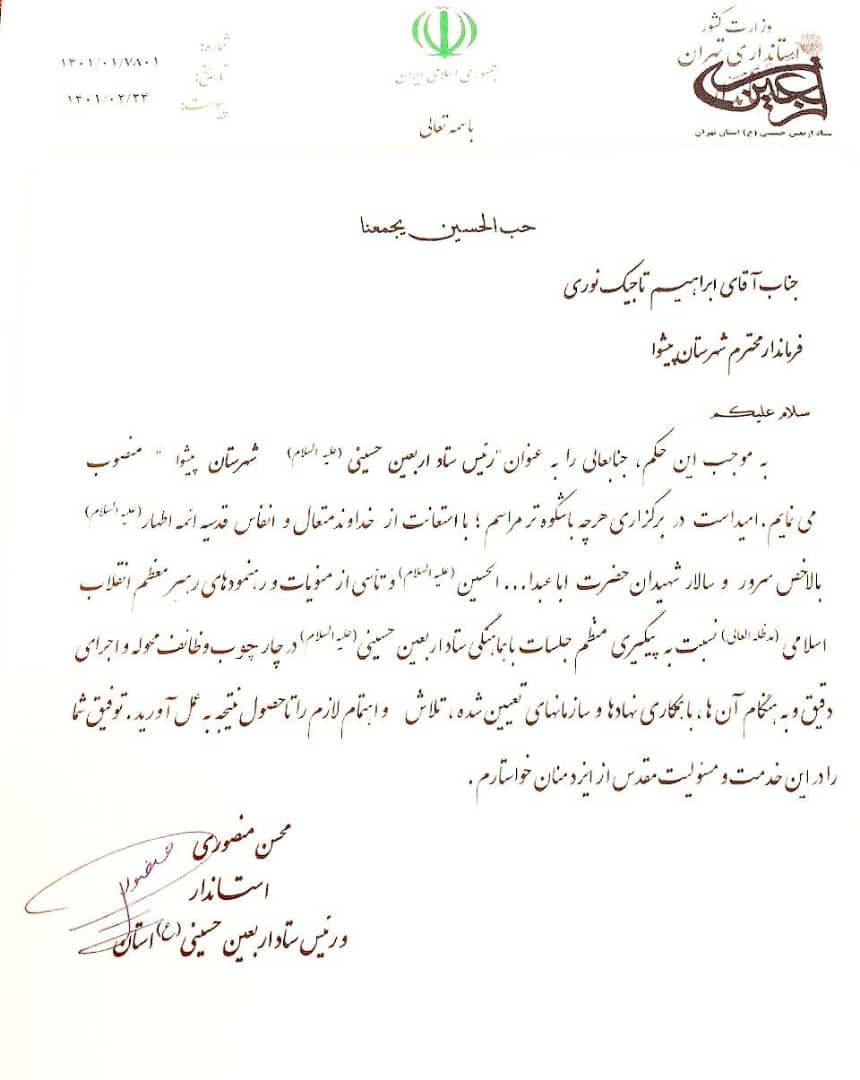 وزارت کشور
استانداری تهران
اربعین
ستاد اربعین حسینی (ع) استان تهران
جمهوری اسلامی ایران
باسمه تعالی
شماره: ۱۴۰۱/۰۱/۷۸۰۱
تاریخ: ۱۴۰۱/۰۲/۲۴
پیوست:
حب الحسین یجمعنا
جناب آقای ابراهیم تاجیک نوری
فرماندار محترم شهرستان پیشوا
سلام علیکم
به موجب این حکم، جنابعالی را به عنوان "رئیس ستاد اربعین حسینی (علیه السلام) شهرستان پیشوا " منصوب
می نمایم. امید است در برگزاری هرچه باشکوه تر مراسم ؛ با استعانت از خداوند متعال و انفاس قدسیه ائمه اطهار (علیه السلام)
بالاخص سرور و سالار شهیدان حضرت اباعبدا... الحسین (علیه السلام) و تأسی از منویات و رهنمودهای رهبر معظم انقلاب
اسلامی (مدظله العالی) نسبت به پیگیری منظم جلسات با هماهنگی ستاد اربعین حسینی (علیه السلام) در چارچوب وظائف محوله و اجرای
دقیق و به هنگام آن ها، با همکاری نهادها و سازمانهای تعیین شده، تلاش و اهتمام لازم را تا حصول نتیجه به عمل آورید. توفیق شما
را در این خدمت و مسئولیت مقدس از ایزد منان خواستارم.
محسن منصوری
استاندار
و رئیس ستاد اربعین حسینی (ع) استان